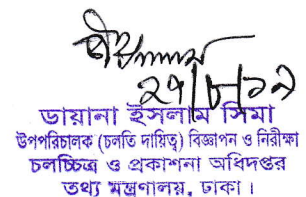 ২৭/৮/১৯
ডায়ানা ইসলাম সিমা
উপপরিচালক (চলতি দায়িত্ব) বিজ্ঞাপন ও নিরীক্ষা
চলচ্চিত্র ও প্রকাশনা অধিদপ্তর
তথ্য মন্ত্রণালয়, ঢাকা।